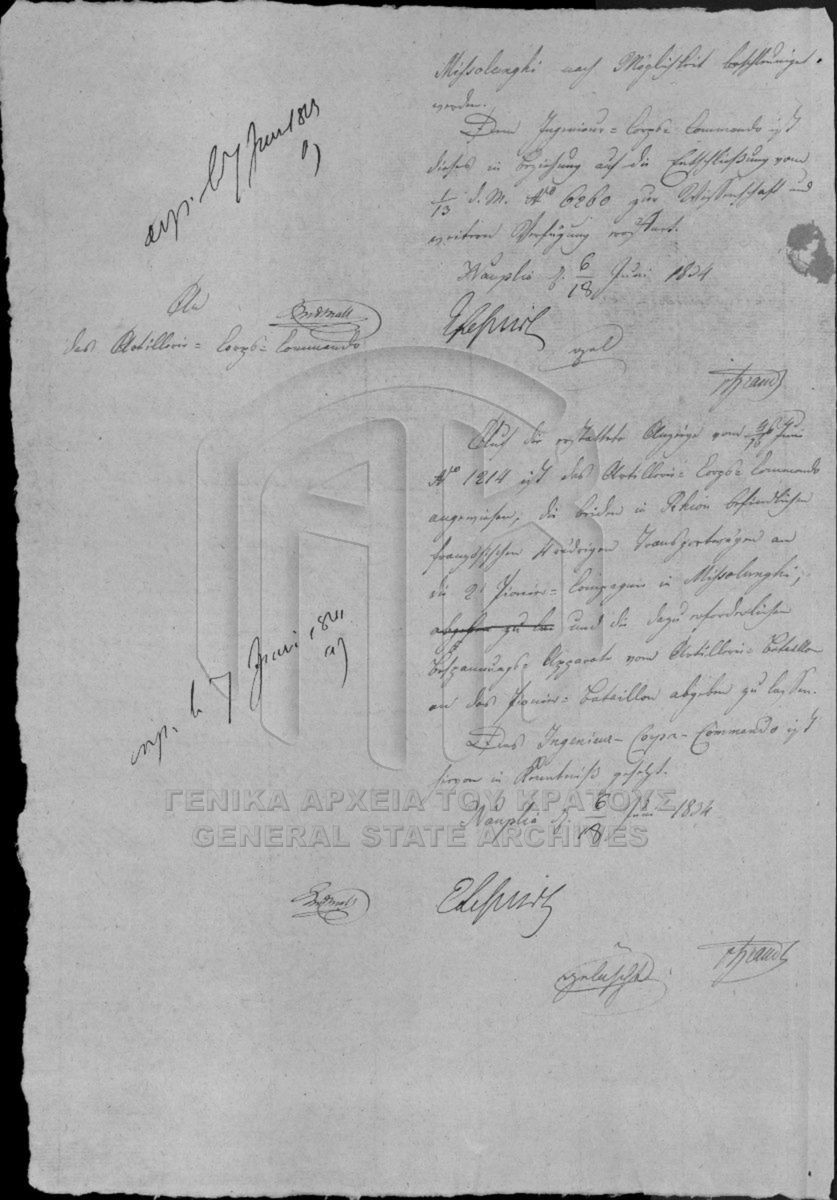 Missolunghi nach Möglichkeit beschleuniget
werden.
Dem Ingenieur-Corps-Commando ist
dieses in Beziehung auf die Entschließung vom
1/13 d. M. No 6260 zur Wissenschaft und
weitern Verfügung
Nauplia d. 6/18 Juni 1834
exp. d 7 Juni 1834
An
das Artillerie-Corps-Commando
Auf die erstattete Anzeige vom Juni
No 1214 ist das Artillerie-Corps-Commando
angewiesen, die beiden in Rhion befindlichen
französischen 4 rädrigen Transportwägen an
die 2t Pionier-Compagnie in Missolunghi,
abgeben zu und die dazu erforderlichen
Bespannungs-Apparate vom Artillerie-Bataillon
an das Pionier-Bataillon abgeben zu lassen.
Das Ingenieur-Corps-Commando ist
hievon in Kenntniß gesetzt.
Nauplia d. 6/18 Juni 1834
exp. d 7 Juni 1834
ΓΕΝΙΚΑ ΑΡΧΕΙΑ ΤΟΥ ΚΡΑΤΟΥΣ
GENERAL STATE ARCHIVES